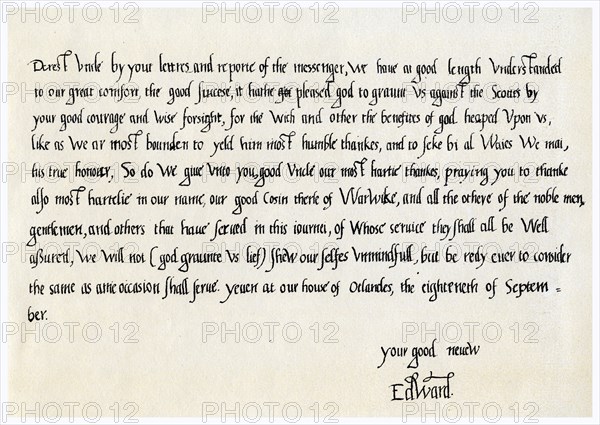 Derest Uncle by your lettres and reporte of the messenger, we have at good length understanded
to our great comfort, the good succese, it hathe pleased god to graunt us against the Scottes by
your good courage and wise forsight, for the wich and other the benefites of god heaped upon us,
like as we ar most bounden to yeld him most humble thankes, and to seke bi al waies we mai,
his true honour, So do we give unto you, good Uncle our most hartie thankes, praying you to thanke
also most hartelie in our name, our good Cosin therle of Warwike, and all the othere of the noble men,
gentlemen, and others that have served in this iournei, of whose service they shall all be well
assured, we will not (god graunte us lief) shew our selfes unmindfull, but be redy ever to consider
the same as anie occasion shall serve. yeven at our house of Otlandes, the eighteneth of Septem=
ber.
your good neuew
Edward.
PHOTO 12